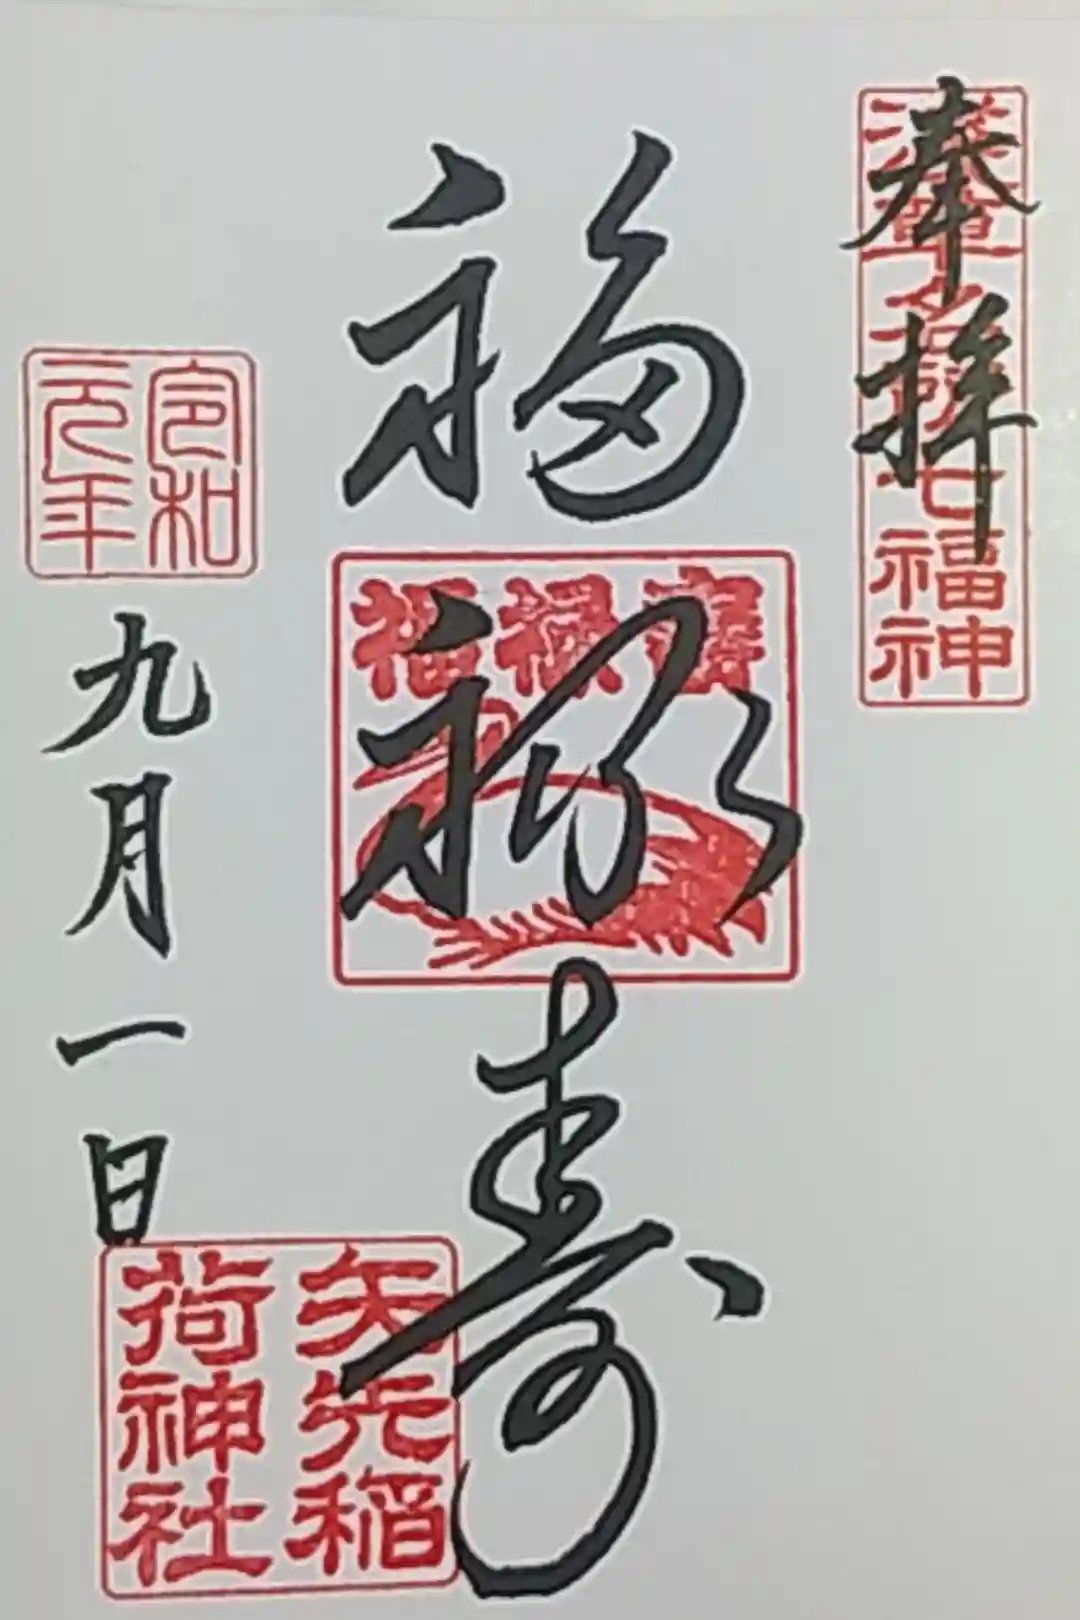 奉拝
浅草名所七福神
福禄寿
福禄寿
令和
元年
九月一日
矢先稲
荷神社